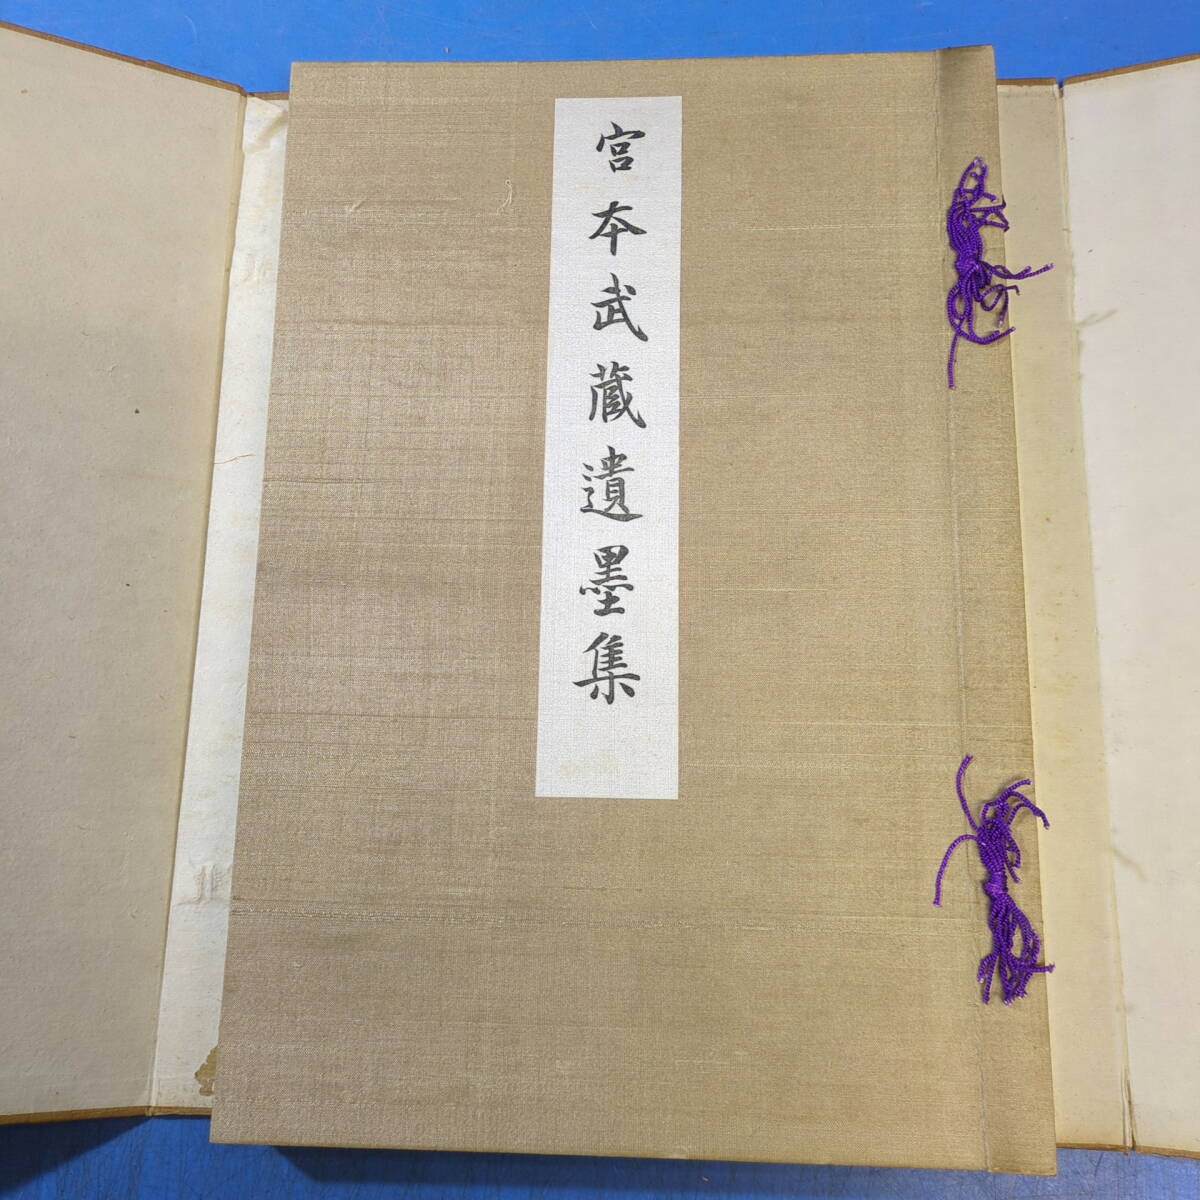 宮本武蔵遺墨集